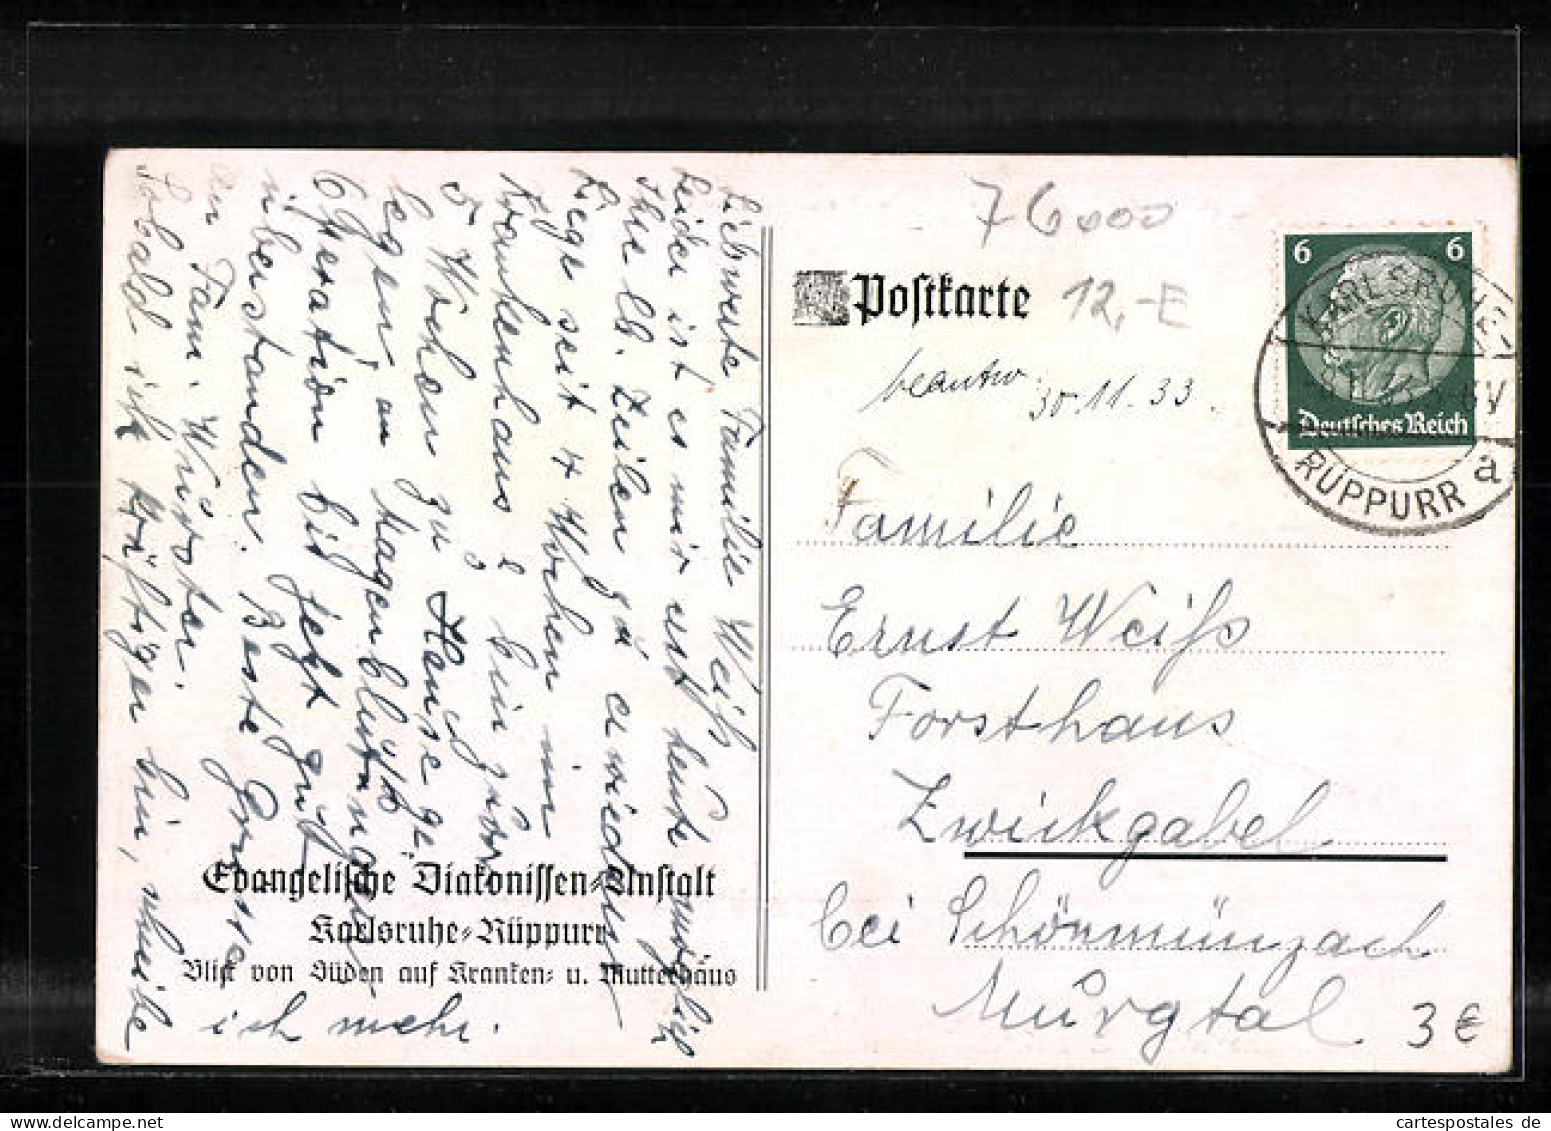 Liebwerte Familie Weiß
Leider ist es mir erst heute möglich
Ihre lb. Zeilen zu erwiedern
Liege seit 4 Wochen im
Krankenhaus & bin schon
5 Wochen zu Hause ge-
legen an Magenblutungen
Operation bis jetzt gut
überstanden. Beste Grüsse
an Fam. Würster.
Sobald ich kräftiger bin, schreibe
ich mehr.
Evangelische Diakonissen-Anstalt
Karlsruhe-Rüppurr
Blick von Süden auf Kranken- u. Mutterhaus
76000
Postkarte 12,-E
beantw. 30.11.33.
6 6
Deutsches Reich
KARLSRUHE
RÜPPURR a
Familie
Ernst Weiß
Forsthaus
Zwickgabel
bei Schönmünzach
Murgtal
3 €
cartespostales de